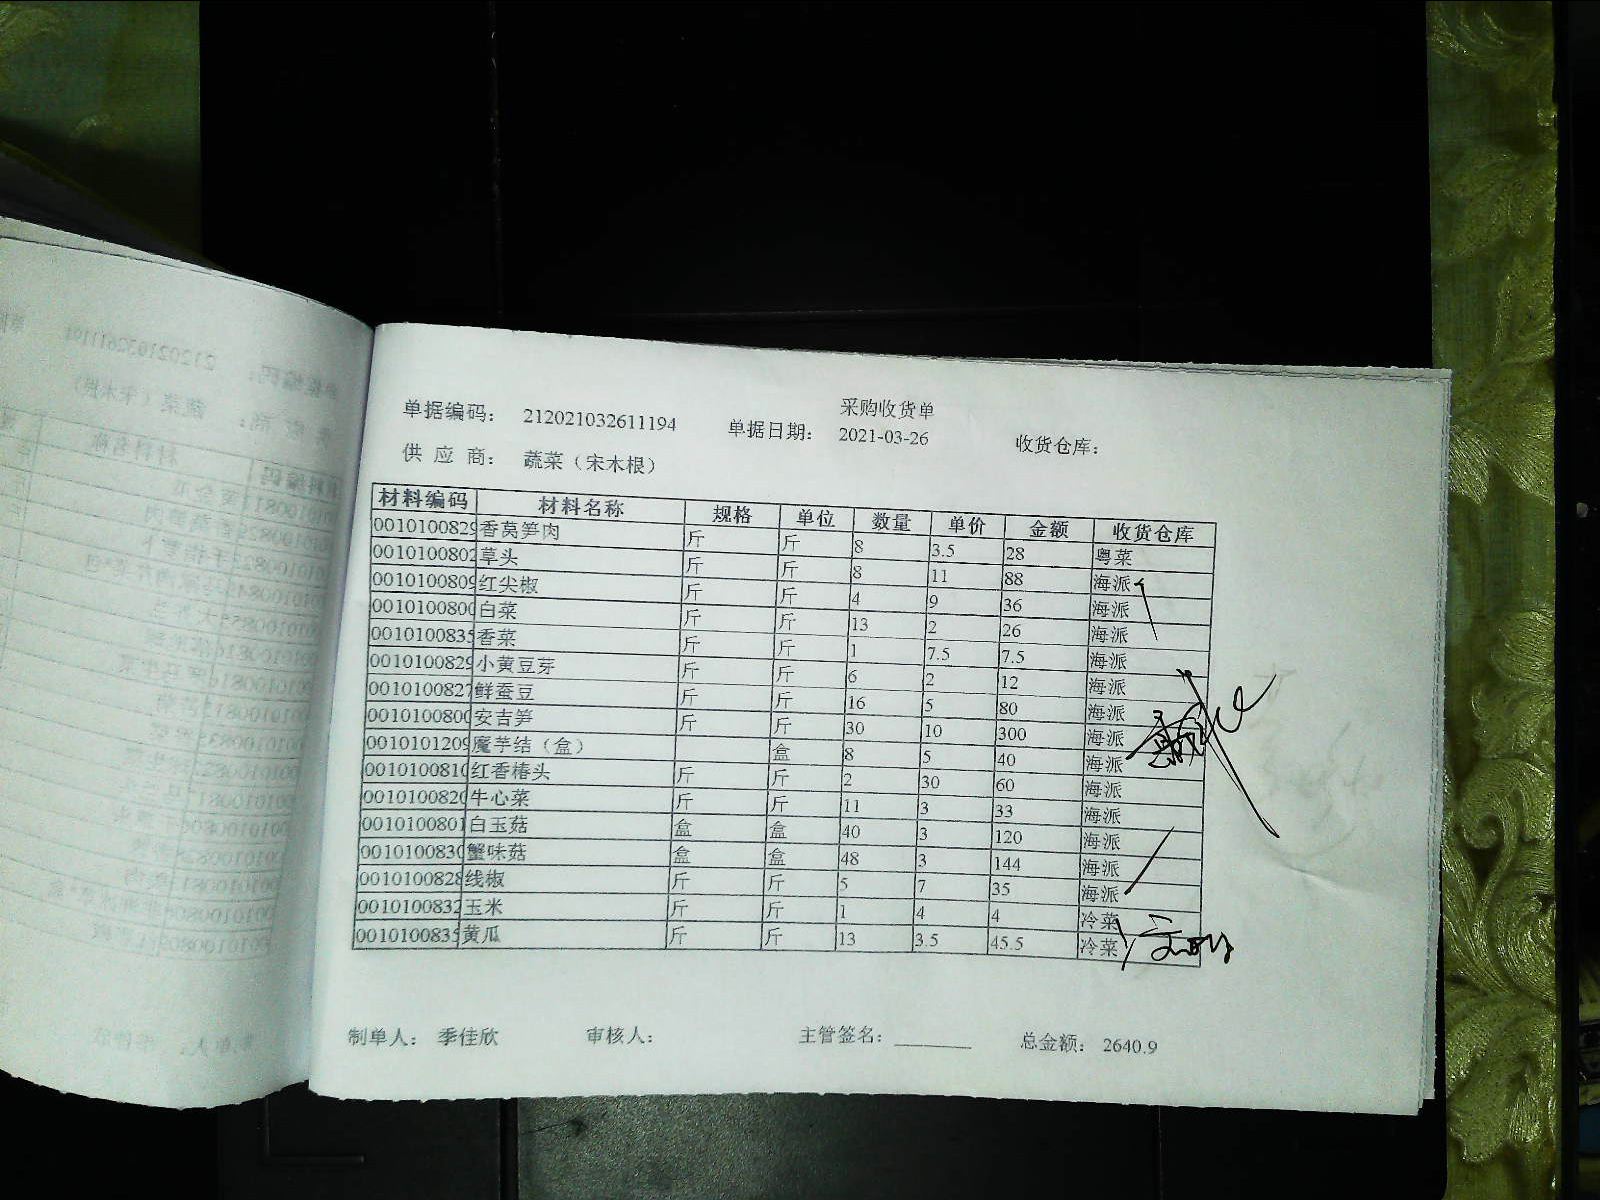 采购收货单
单据编码： 212021032611194 单据日期： 2021-03-26 收货仓库：
供 应 商： 蔬菜（宋木根）
材料编码 材料名称 规格 单位 数量 单价 金额 收货仓库
0010100829 香莴笋肉 斤 斤 8 3.5 28 粤菜
0010100802 草头 斤 斤 8 11 88 海派
0010100809 红尖椒 斤 斤 4 9 36 海派
0010100800 白菜 斤 斤 13 2 26 海派
0010100835 香菜 斤 斤 1 7.5 7.5 海派
0010100829 小黄豆芽 斤 斤 6 2 12 海派
0010100827 鲜蚕豆 斤 斤 16 5 80 海派
0010100800 安吉笋 斤 斤 30 10 300 海派
0010101209 魔芋结（盒） 盒 8 5 40 海派
0010100810 红香椿头 斤 斤 2 30 60 海派
0010100820 牛心菜 斤 斤 11 3 33 海派
0010100801 白玉菇 盒 盒 40 3 120 海派
0010100830 蟹味菇 盒 盒 48 3 144 海派
0010100828 线椒 斤 斤 5 7 35 海派
0010100832 玉米 斤 斤 1 4 4 冷菜
0010100835 黄瓜 斤 斤 13 3.5 45.5 冷菜
制单人： 季佳欣 审核人： 主管签名：________ 总金额： 2640.9